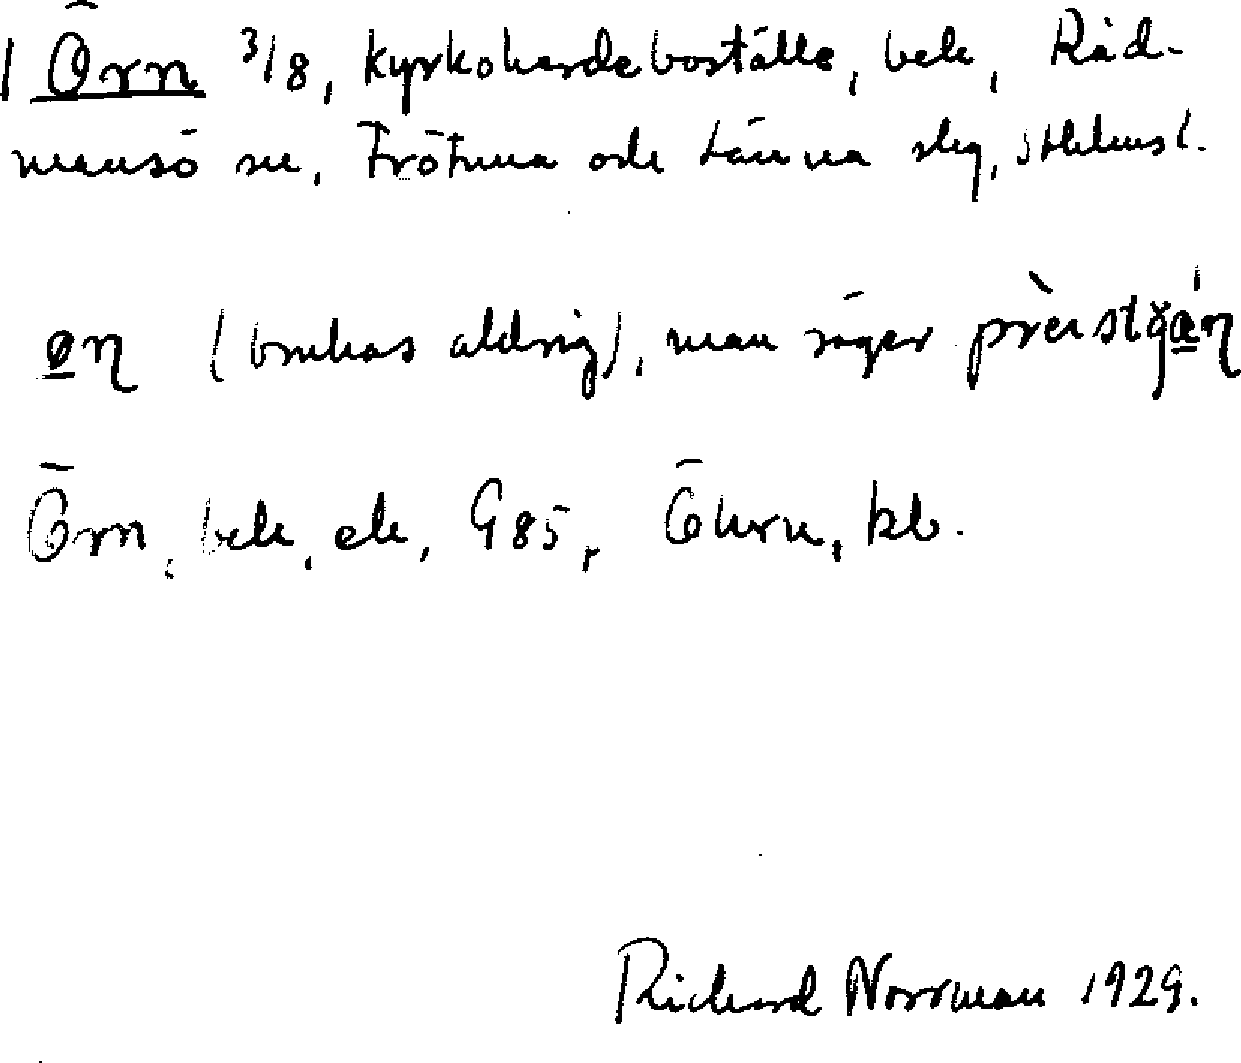 1 Örn 3/8, kyrkoherdeboställe, bek, Råd-
mansö sn, Frötuna och Länna slg, Sthlms l.
øn̥ (brukas aldrig), man säger prèstgán̥
Örn, bek, ek, G85, Öhrn, kb.
Richard Norrman 1929.